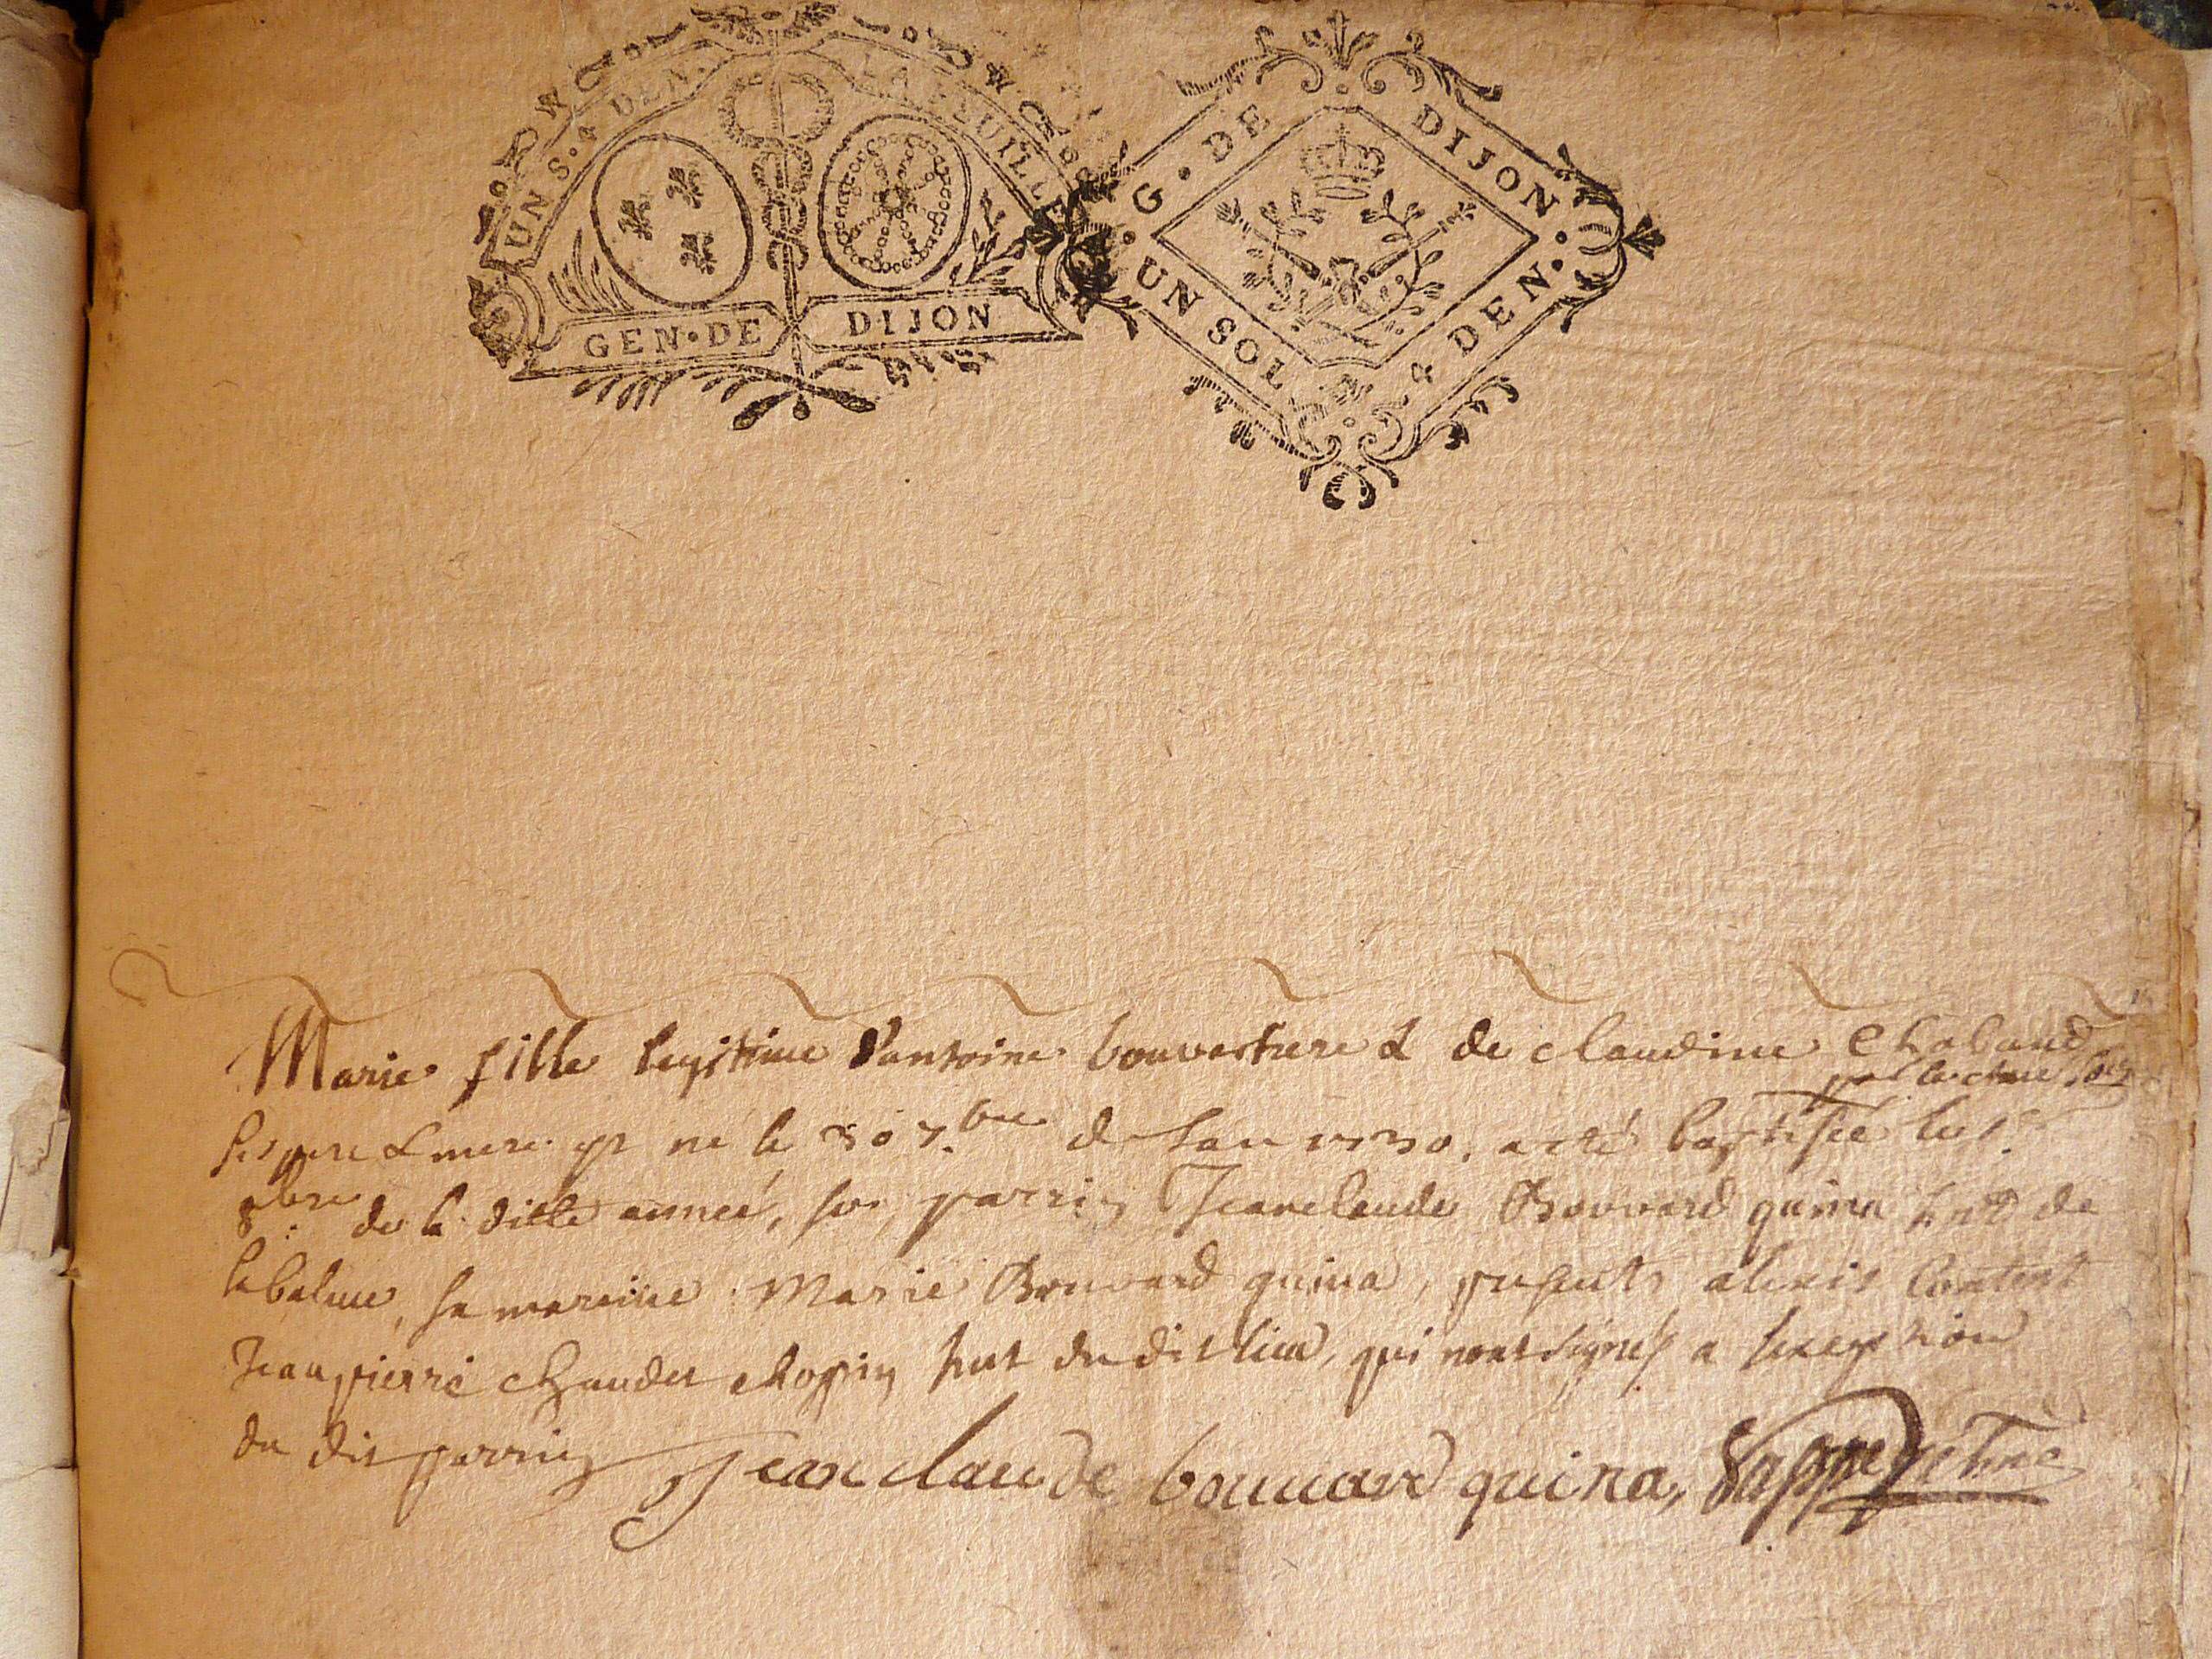 UN S. 4 DEN. LA FEUILLE
GEN. DE DIJON
G. DE DIJON
UN SOL 4 DEN.
Marie fille legitime d'antoine bouvart & de claudine Chaband
ses pere & mere est né le 30 7.bre de lan 1730, a été baptisée le 1.r
8bre de la ditte année, son parrin Jeanclaude Bouvard quina hnt de
la balme, sa mareine Marie Bouvard quina, presents alexis
Jean pierre chapin hnt du dit lieu, qui nont signés a lexeption
du dit parrin Jean claude bouuard quina, pretre